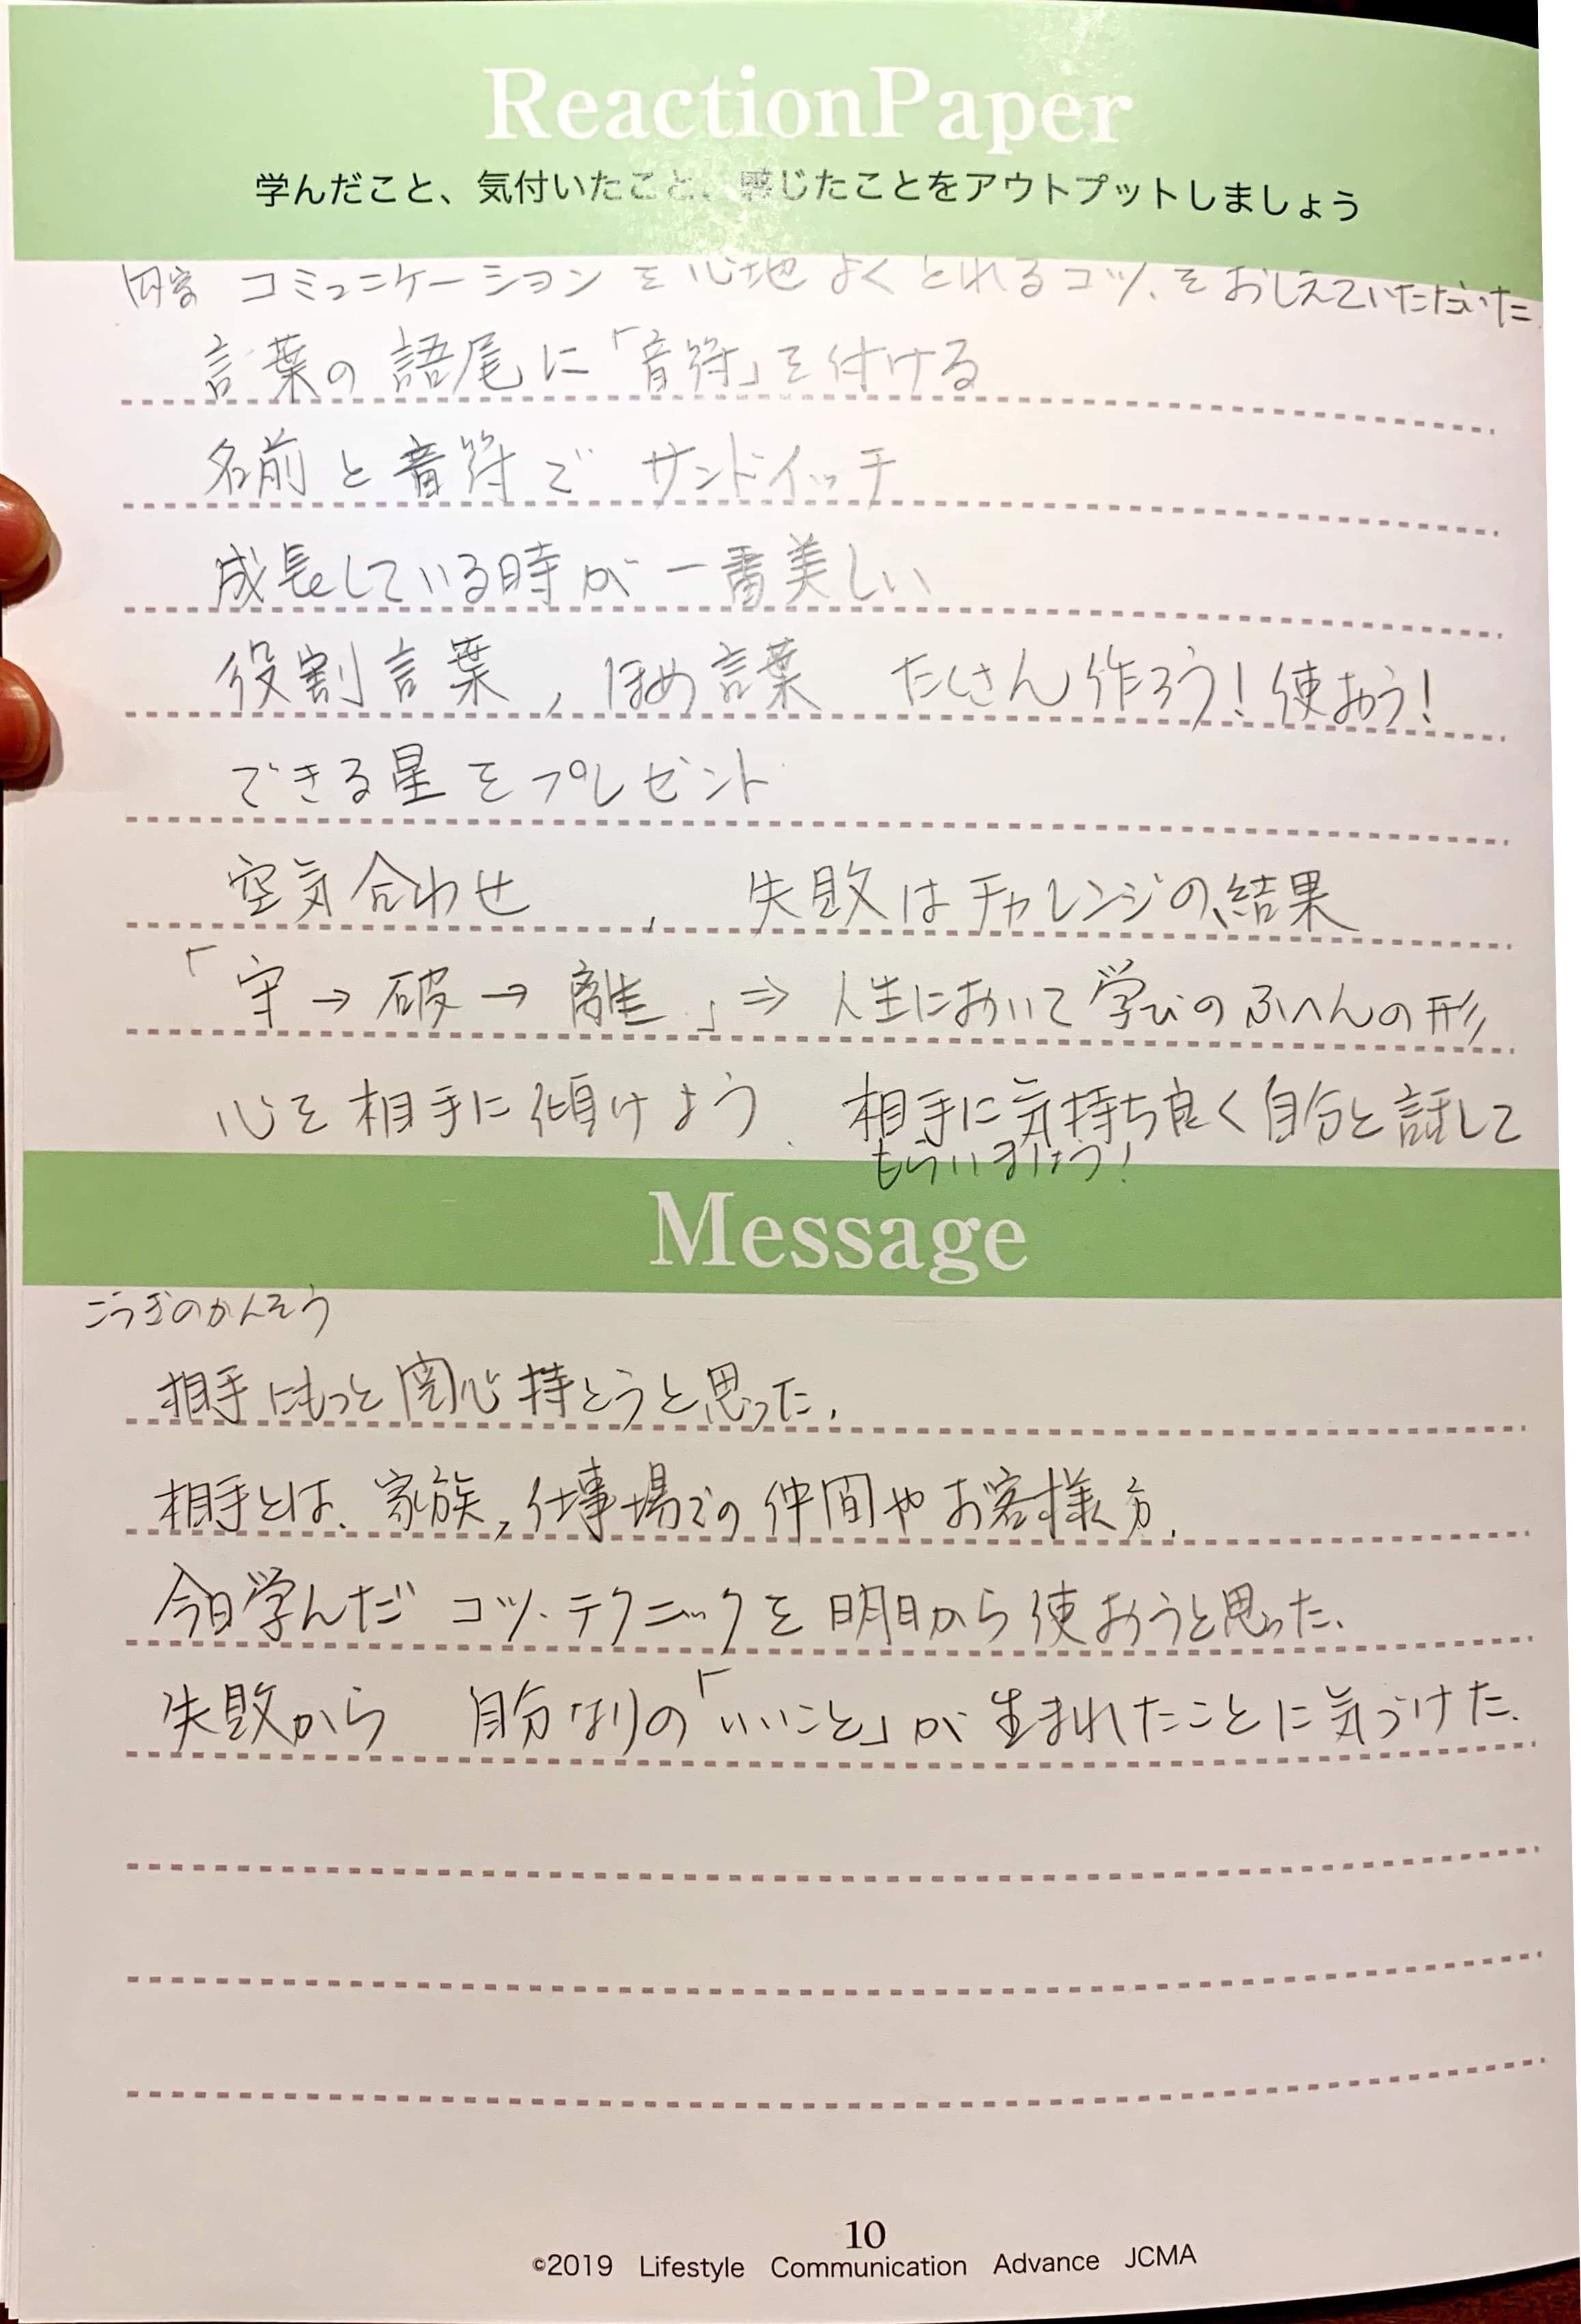 ReactionPaper
学んだこと、気付いたこと、感じたことをアウトプットしましょう
内容 コミュニケーションを心地よくとれるコツ、をおしえていただいた
言葉の語尾に「音符」を付ける
名前と音符で サンドイッチ
成長している時が一番美しい
役割言葉、ほめ言葉 たくさん作ろう!使おう!
できる星をプレゼント
空気合わせ 、 失敗はチャレンジの結果
「守→破→離」⇒人生において学びのふへんの形
心を相手に傾けよう、相手に気持ち良く自分と話して
もらいましょう!
Message
こうぎのかんそう
相手にもっと関心持とうと思った。
相手とは、家族、仕事場での仲間やお客様方。
今日学んだ コツ・テクニックを明日から使おうと思った。
失敗から 自分なりの「いいこと」が生まれたことに気づけた。
10
©2019 Lifestyle Communication Advance JCMA